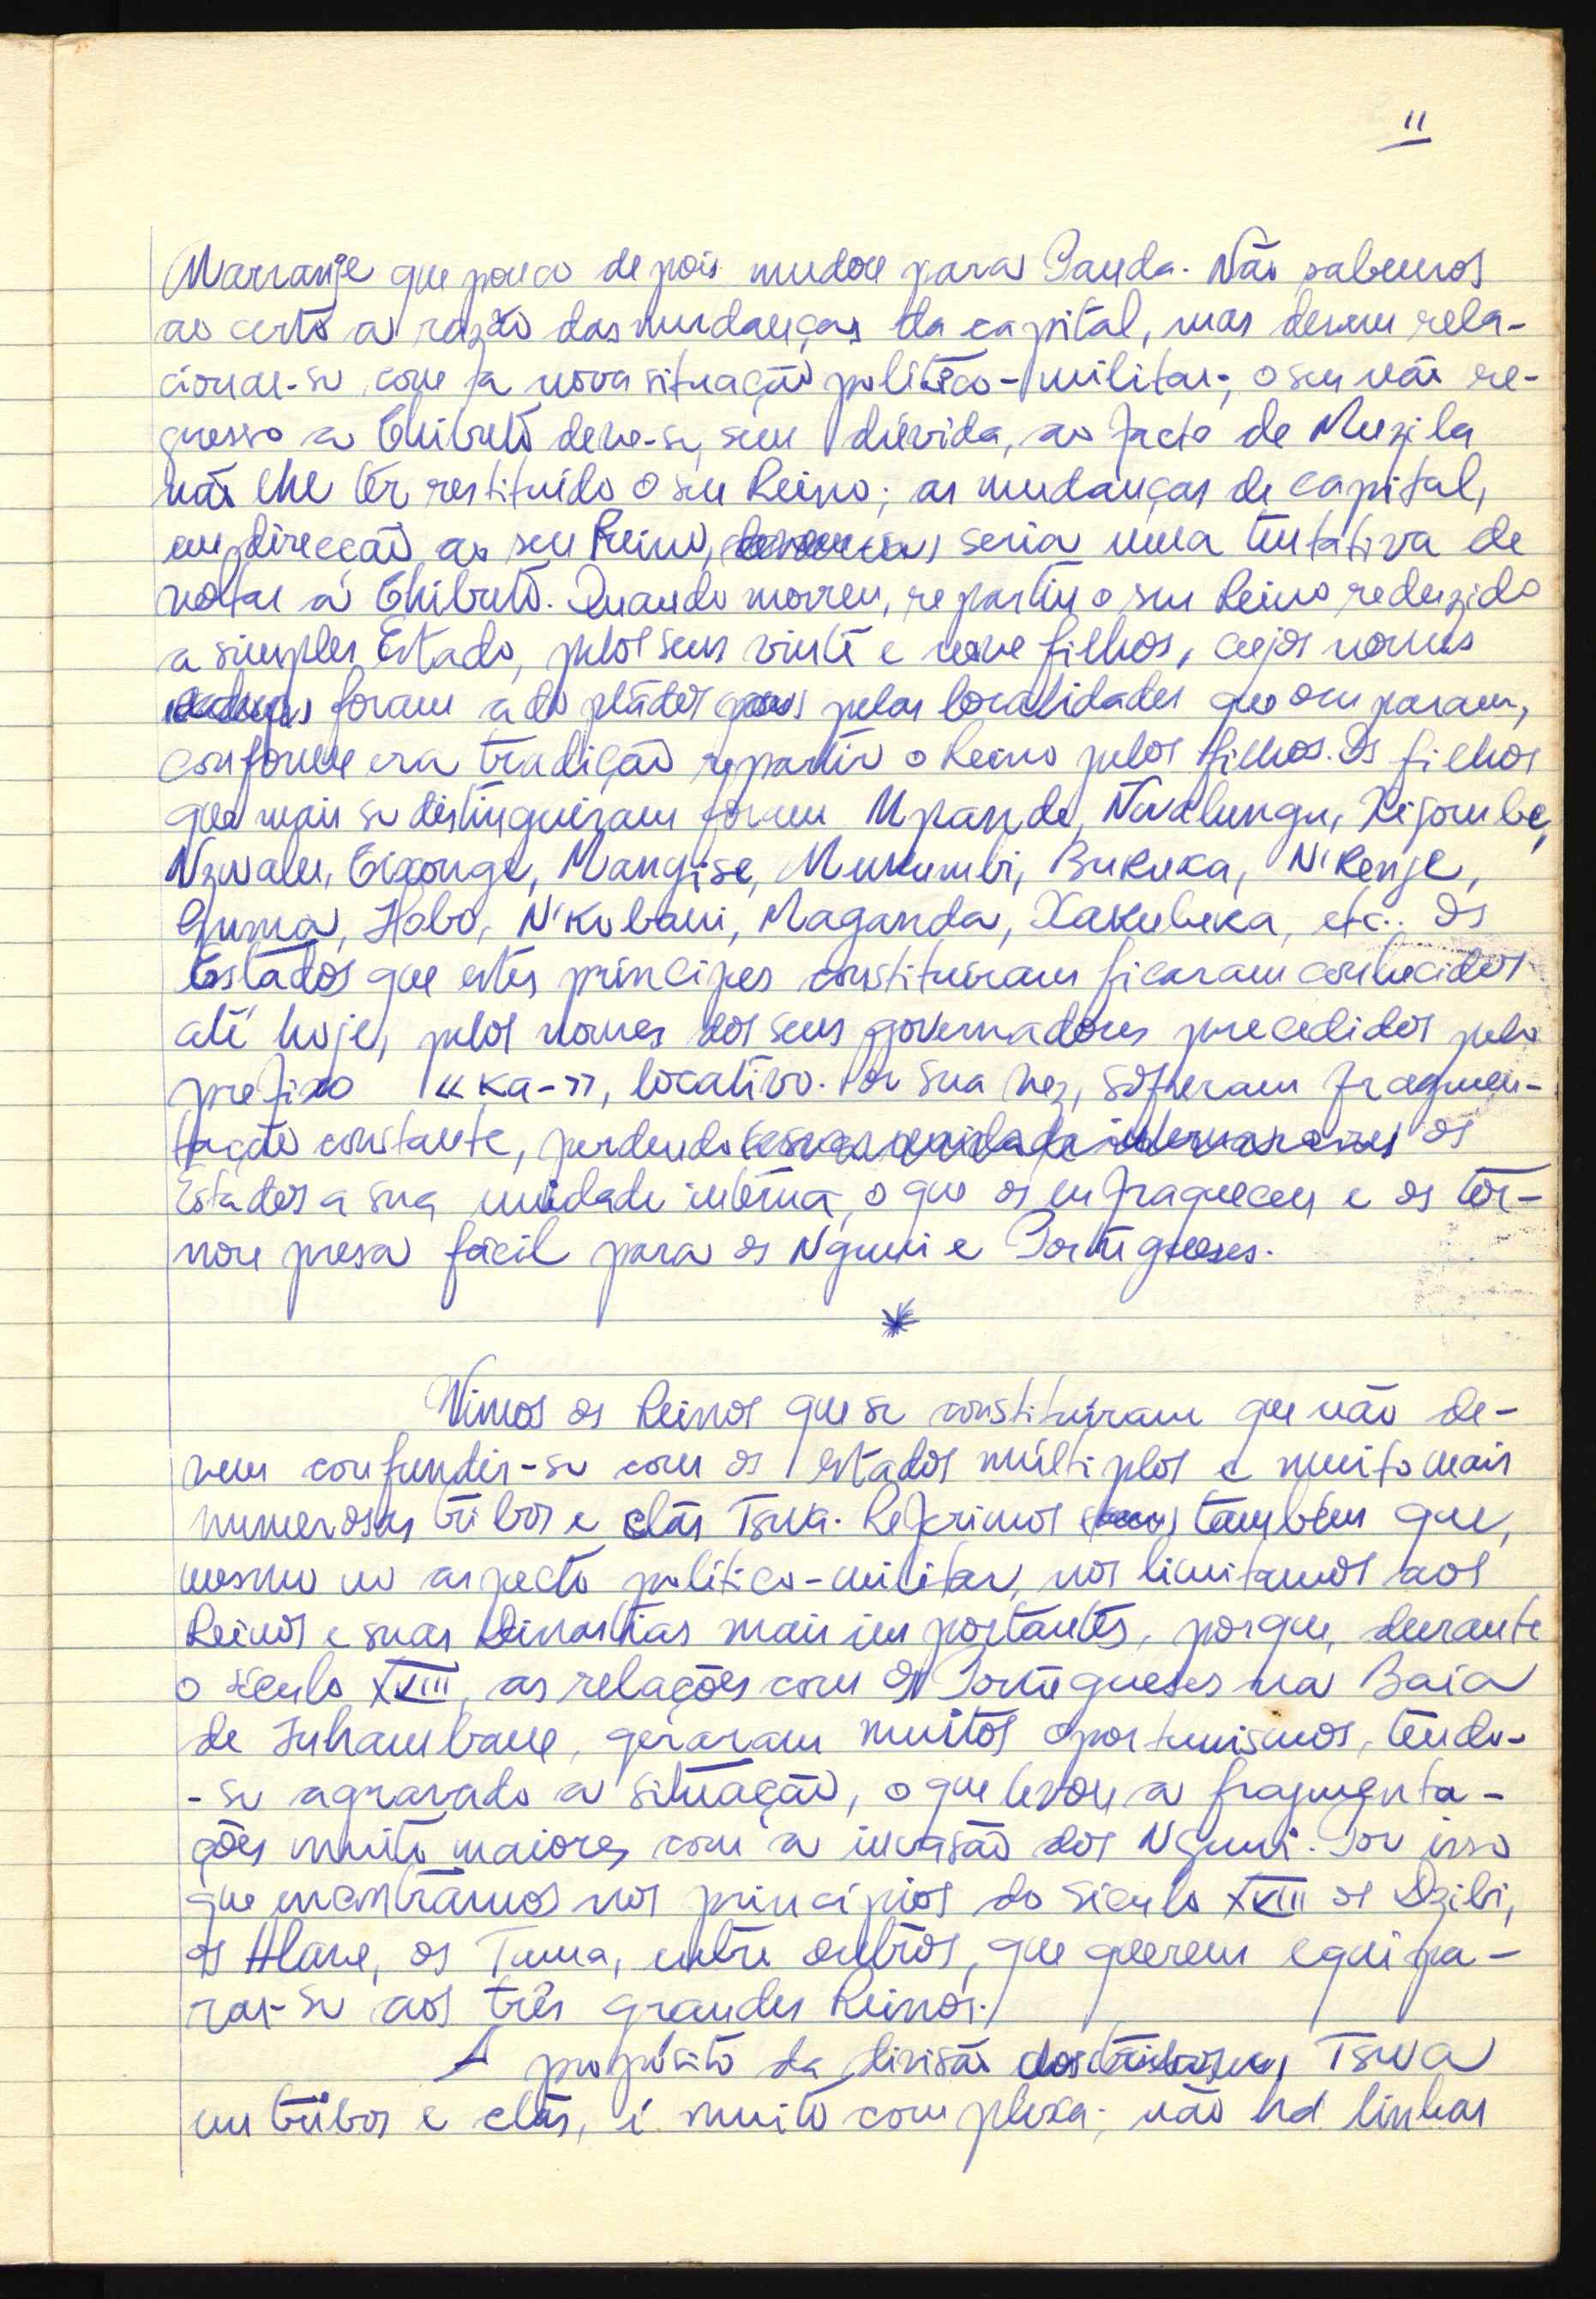 11
Marranje que pouco depois mudou para Panda. Não sabemos
ao certo a razão das mudanças da capital, mas devem rela-
cionar-se com a nova situação político-militar; o seu não re-
gresso a Chibuto deve-se, sem dúvida, ao facto de Muzila
não lhe ter restituído o seu Reino; as mudanças de capital,
em direcção ao seu Reino, seria uma tentativa de
voltar a Chibuto. Quando morreu, repartiu o seu Reino reduzido
a simples Estado, pelos seus vinte e nove filhos, cujos nomes
foram adoptados pelas localidades que ocuparam,
conforme era tradição repartir o Reino pelos filhos. Os filhos
que mais se distinguiram foram Mpande, Navalungu, Xijombe,
Nzwalu, Cixonge, Mangise, Mukumbi, Bukuka, N'Kenje,
Guma, Hobo, N'Kobani, Maganda, Xakubeka, etc.. Os
Estados que estes príncipes constituiram ficaram conhecidos
até hoje, pelos nomes dos seus governadores precedidos pelo
prefixo «ka-», locativo. Por sua vez, sofreram fragmen-
tação constante, perdendo os
Estados a sua unidade interna, o que os enfraqueceu e os tor-
nou presa fácil para os Nguni e Portugueses.
*
Vimos os Reinos que se constituíram que não de-
vem confundir-se com os estados múltiplos e muito mais
numerosas tribos e clãs Tswa. Referimos também que,
mesmo no aspecto político-militar, nos limitamos aos
Reinos e suas Dinastias mais importantes, porque, durante
o século XVIII, as relações com os Portugueses na Baía
de Inhambane, geraram muitos oportunismos, tendo-
-se agravado a situação, o que levou a fragmenta-
ções muito maiores com a invasão dos Nguni. Por isso
que encontramos nos princípios do Século XVIII os Dzibi,
os Hlave, os Tuma, entre outros, que querem equipa-
rar-se aos três grandes Reinos.
A propósito da divisão dos Tswa
em tribos e clãs, é muito complexa; não há linhas